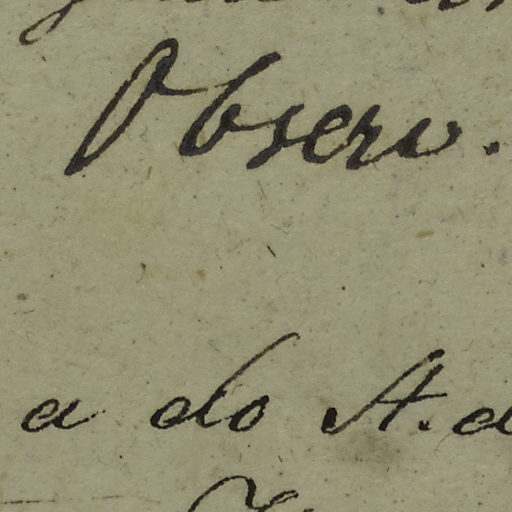 Observ.
a do A. d